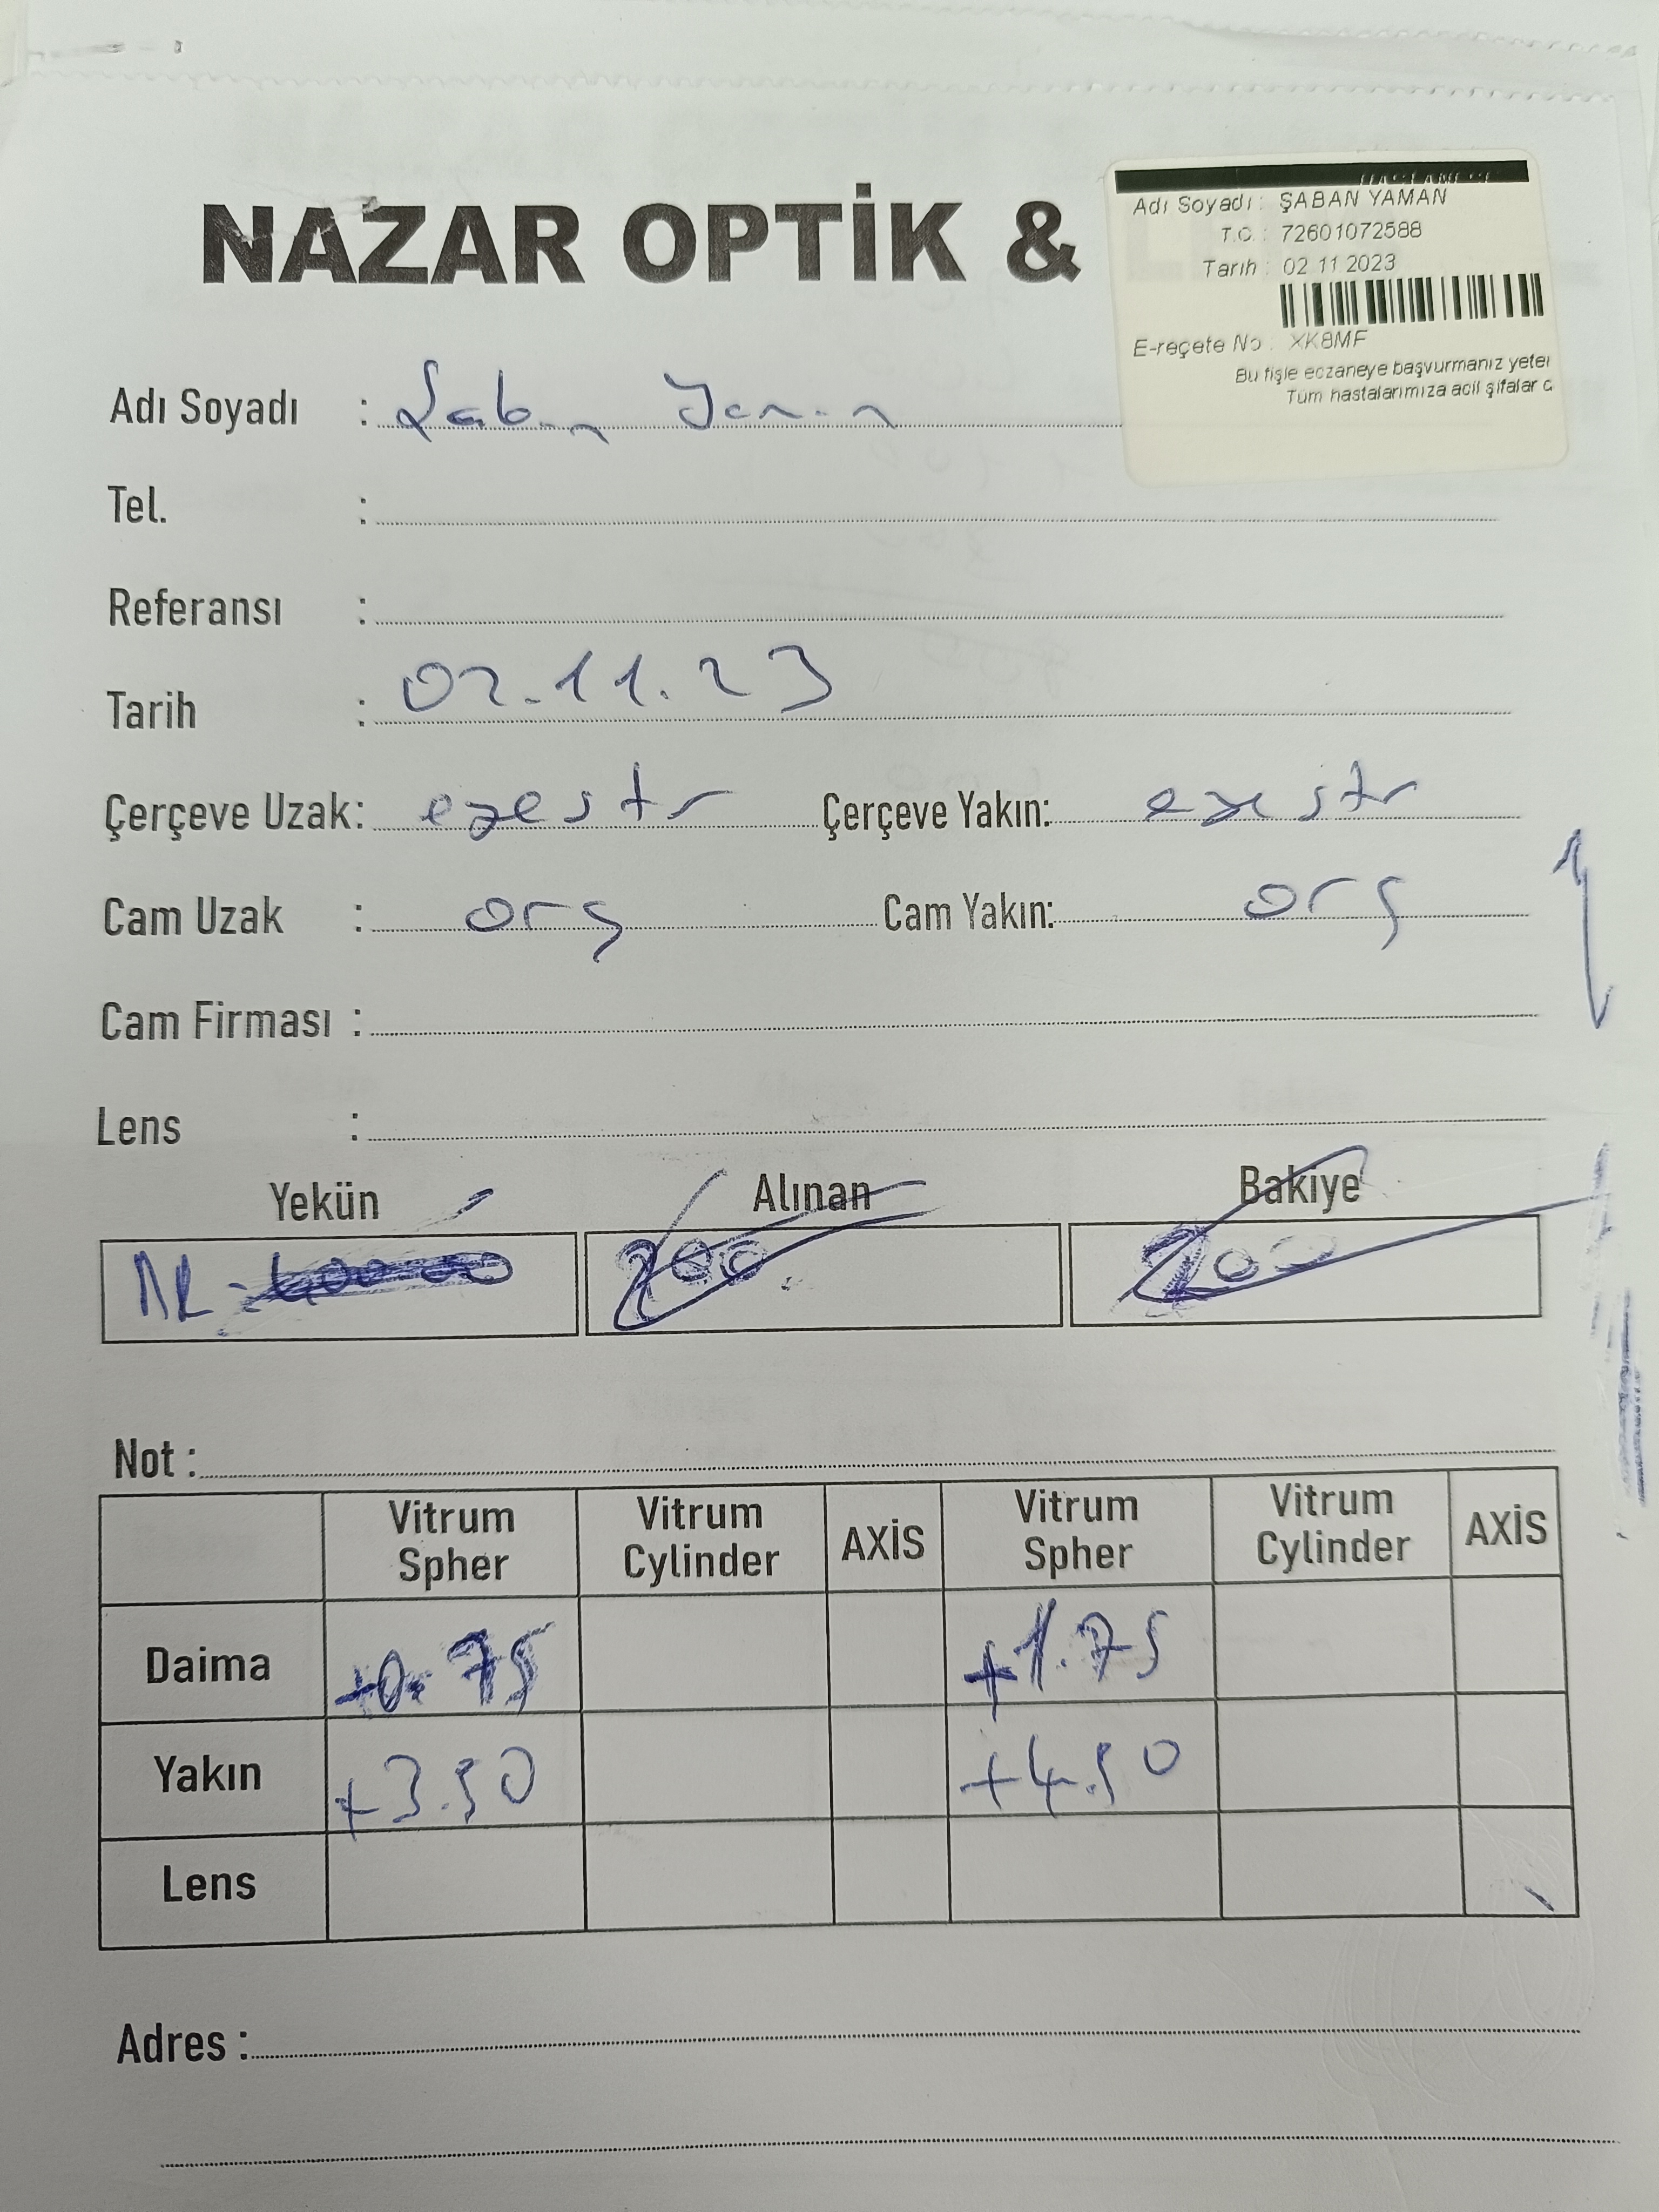 NAZAR OPTİK &
Adı Soyadı : ŞABAN YAMAN
T.C. : 72601072588
Tarih : 02 11 2023
E-reçete No : XK8MF
Bu fişle eczaneye başvurmanız yeter
Tüm hastalarımıza acil şifalar d
Adı Soyadı : Şaban Yaman
Tel. :
Referansı :
Tarih : 02.11.23
Çerçeve Uzak: Çerçeve Yakın:
Cam Uzak : org Cam Yakın: org
Cam Firması :
Lens :
Yekün Alınan Bakiye
200 200
Not :
Vitrum Spher Vitrum Cylinder AXİS Vitrum Spher Vitrum Cylinder AXİS
Daima +0.75 +1.75
Yakın +3.50 +4.50
Lens
Adres :